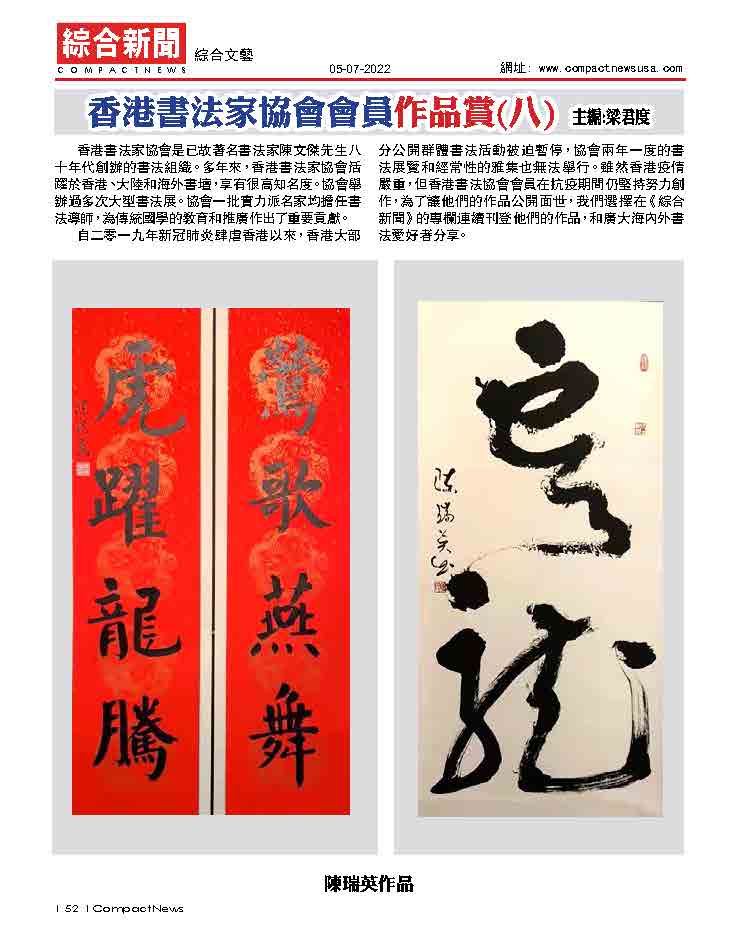 綜合新聞
COMPACTNEWS
綜合文藝
05-07-2022
網址: www.compactnewsusa.com
香港書法家協會會員作品賞(八)
主編:梁君度
香港書法家協會是已故著名書法家陳文傑先生八
十年代創辦的書法組織。多年來，香港書法家協會活
躍於香港、大陸和海外書壇，享有很高知名度。協會舉
辦過多次大型書法展。協會一批實力派名家均擔任書
法導師，為傳統國學的教育和推廣作出了重要貢獻。
自二零一九年新冠肺炎肆虐香港以來，香港大部
分公開群體書法活動被迫暫停，協會兩年一度的書
法展覽和經常性的雅集也無法舉行。雖然香港疫情
嚴重，但香港書法協會會員在抗疫期間仍堅持努力創
作，為了讓他們的作品公開面世，我們選擇在《綜合
新聞》的專欄連續刊登他們的作品，和廣大海內外書
法愛好者分享。
鶯歌燕舞
虎躍龍騰
陳瑞英
陳瑞英作品
| 52 | CompactNews